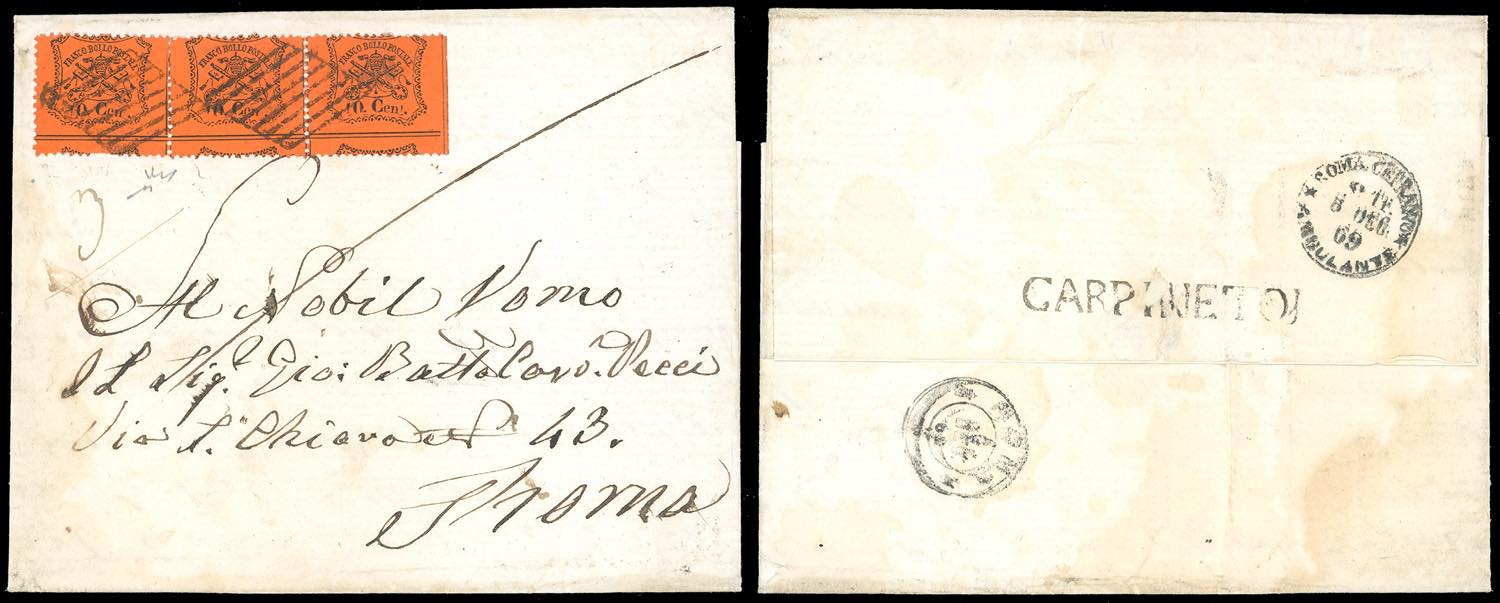 FRANCO BOLLO POSTALE FRANCO BOLLO POSTALE FRANCO BOLLO POSTALE
10. Cent. 10. Cent. 10. Cent.
3
Al Nobil Vomo
Il Sig.r Gio: Batta Pecci
Via S. Chiara 43.
Roma
ROMA CEPRANO
8 DEC.
69
AMBULANTE
CARPINETO
ROMA
DEC
69